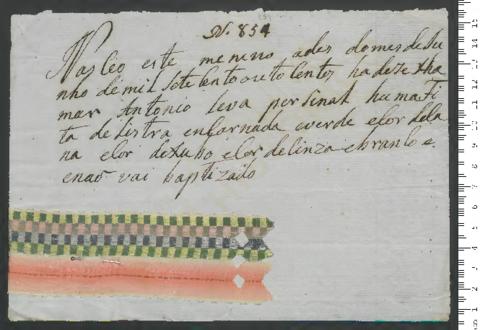 N. 854
Nasceo este menino a des do mes de Ju
nho de mil sete sento oito
mar Antonio leva por sinal huma fi
ta de sistra encarnada e verde e cor de la
na e cor de chubo e cor de sinza e branco e
e nao vai baptizado